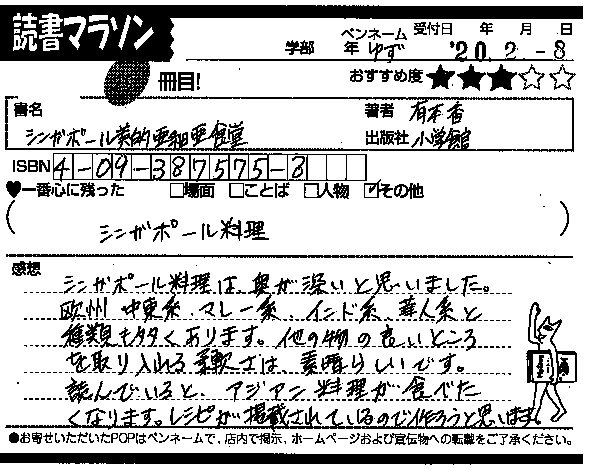 読書マラソン
学部 年 ペンネーム ゆず 受付日 年 月 日 '20.2.-8
冊目! おすすめ度 ★★★☆☆
書名 著者 有本香
シンガポール美的亜細亜食堂 出版社 小学館
ISBN 4-09-387575-8
♥一番心に残った □場面 □ことば □人物 ☑その他
( シンガポール料理 )
感想
シンガポール料理は、奥が深いと思いました。
欧州 中東系、マレー系、インド系、華人系と
種類も多くあります。他の物の良いところ
を取り入れる柔軟さは、素晴らしいです。
読んでいると、アジアン料理が食べた
くなります。レシピが掲載されているので作ろうと思います。
●お寄せいただいたPOPはペンネームで、店内で掲示、ホームページおよび宣伝物への転載をご了承ください。